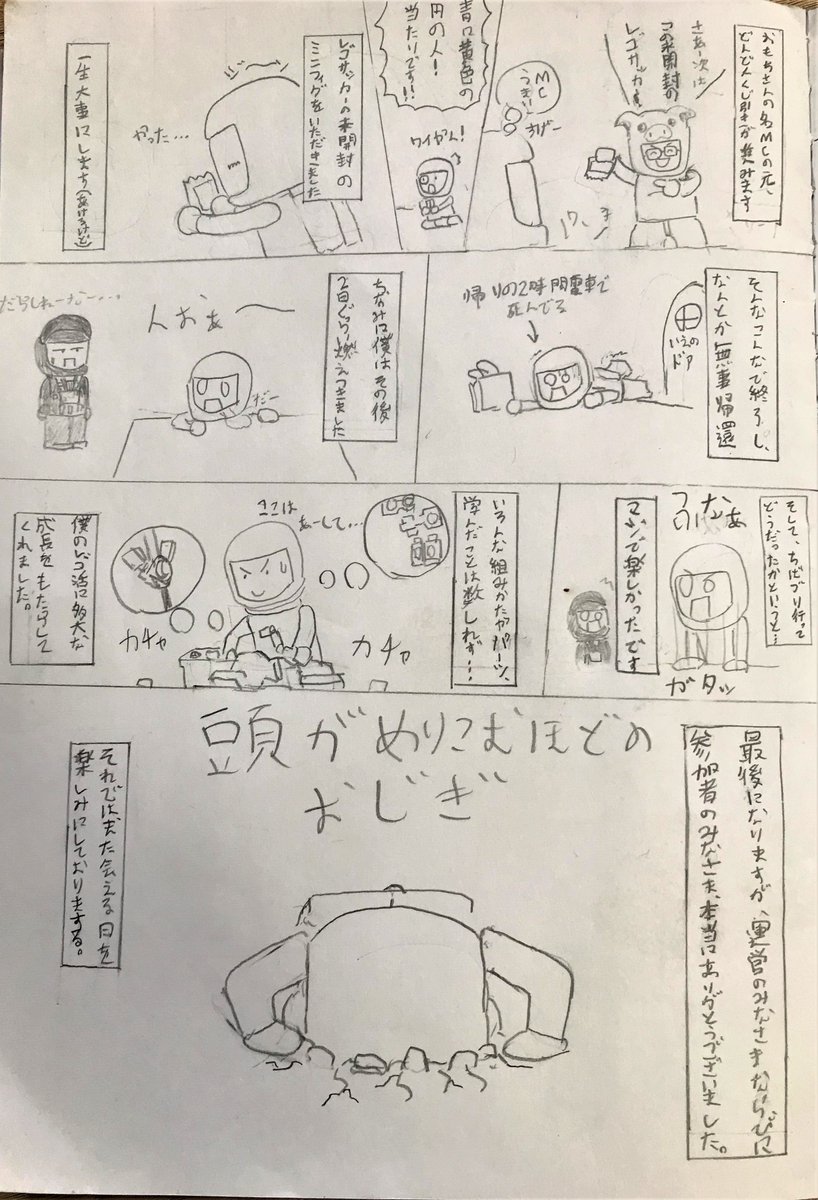 おもちさんの名MCの元、
どんどんくじ引きが進みます
さあ〜次は
この未開封の
レゴサッカー
MC
うきい
すげー
青に黄色の
円の人!
当たりです!!
ワイやん!
レゴサッカーの未開封の
ミニフィグをいただきました
やった…
一生大事にします(あけるけど)
そんなこんなで終了し、
なんとか無事帰還
いえの
ドア
帰りの2時間電車で
死んでる
ちなみに僕はその後
2日ぐらい燃えつきました
だー
そして、ちばブリ行って
どうだったかというと…
ガタッ
マジで楽しかったです
いろんな組みかたやパーツ、
学んだことは数しれず…
ここは
あーして…
カチャ
カチャ
僕のレゴ活に多大な
成長をもたらして
くれました。
最後になりますが、運営のみなさまならびに
参加者のみなさま、本当にありがとうございました。
頭がめりこむほどの
おじぎ
それではまた会える日を
楽しみにしておりまする。